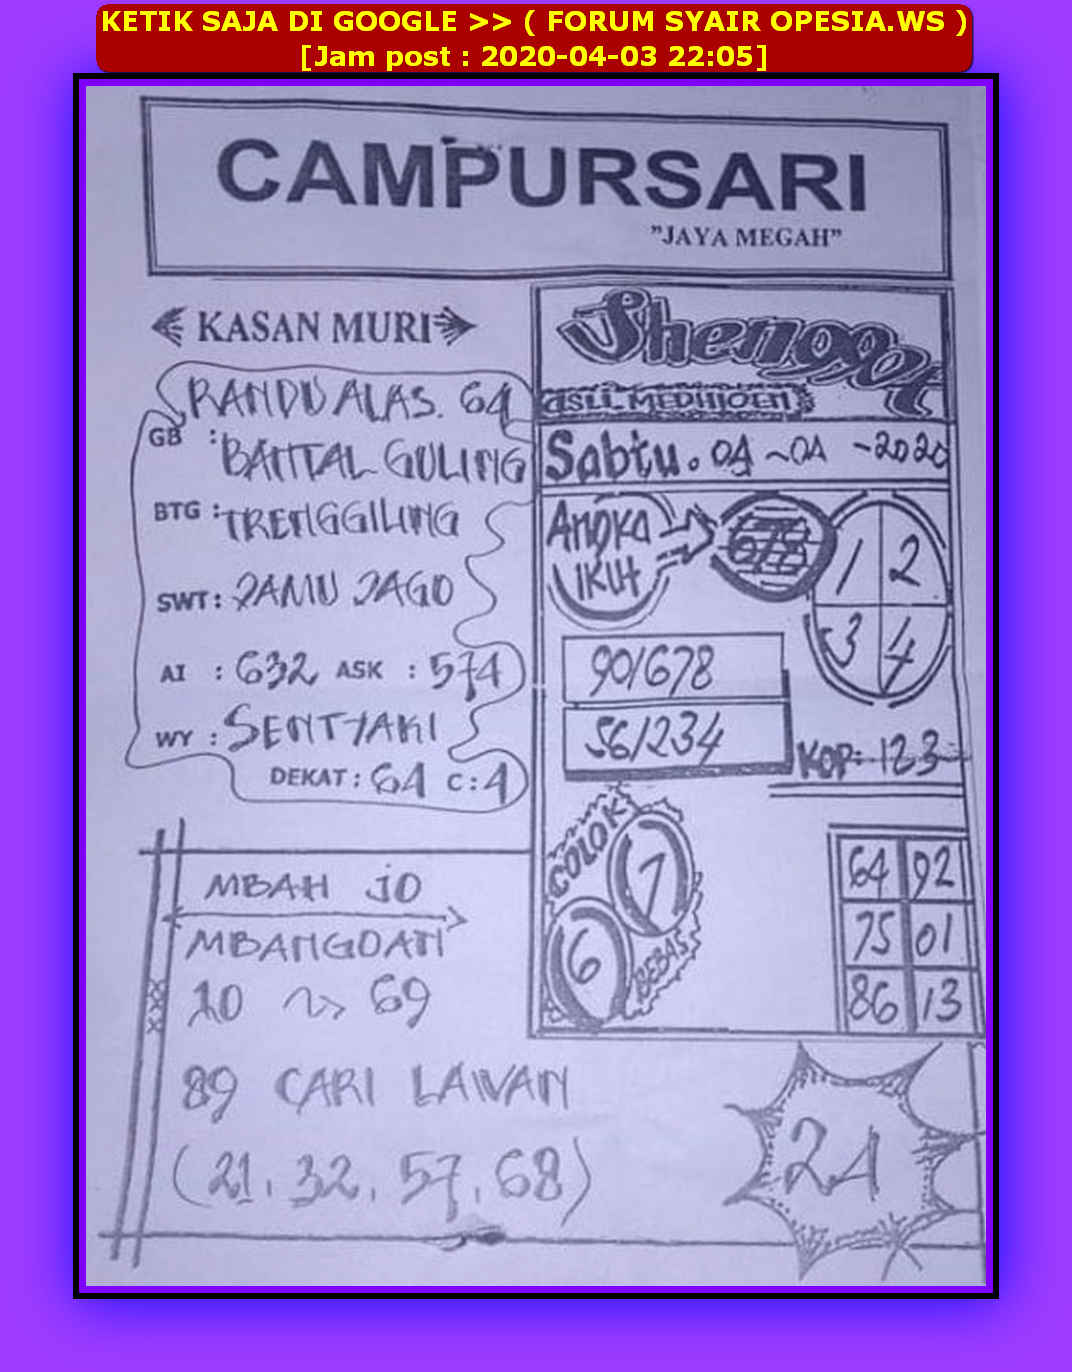 KETIK SAJA DI GOOGLE >> ( FORUM SYAIR OPESIA.WS )
[Jam post : 2020-04-03 22:05]
CAMPURSARI
"JAYA MEGAH"
KASAN MURI
RANDU ALAS. 64
GB : BANTAL GULING
BTG : TRENGGILING
SWT : JAMU JAGO
AI : 632 ASK : 574
WY : SENTYAKI
DEKAT : 64 C : 4
MBAH JO
MBANGOAN
10 ~> 69
89 CARI LAWAN
(21, 32, 57, 68)
ASLI MEDHIOEN
Sabtu. 04 ~04 -2020
ANGKA IKUT
678
1 2
3 4
90/678
56/234
KOP: 123
COLOK
7
6
BEBAS
64 92
75 01
86 13
24